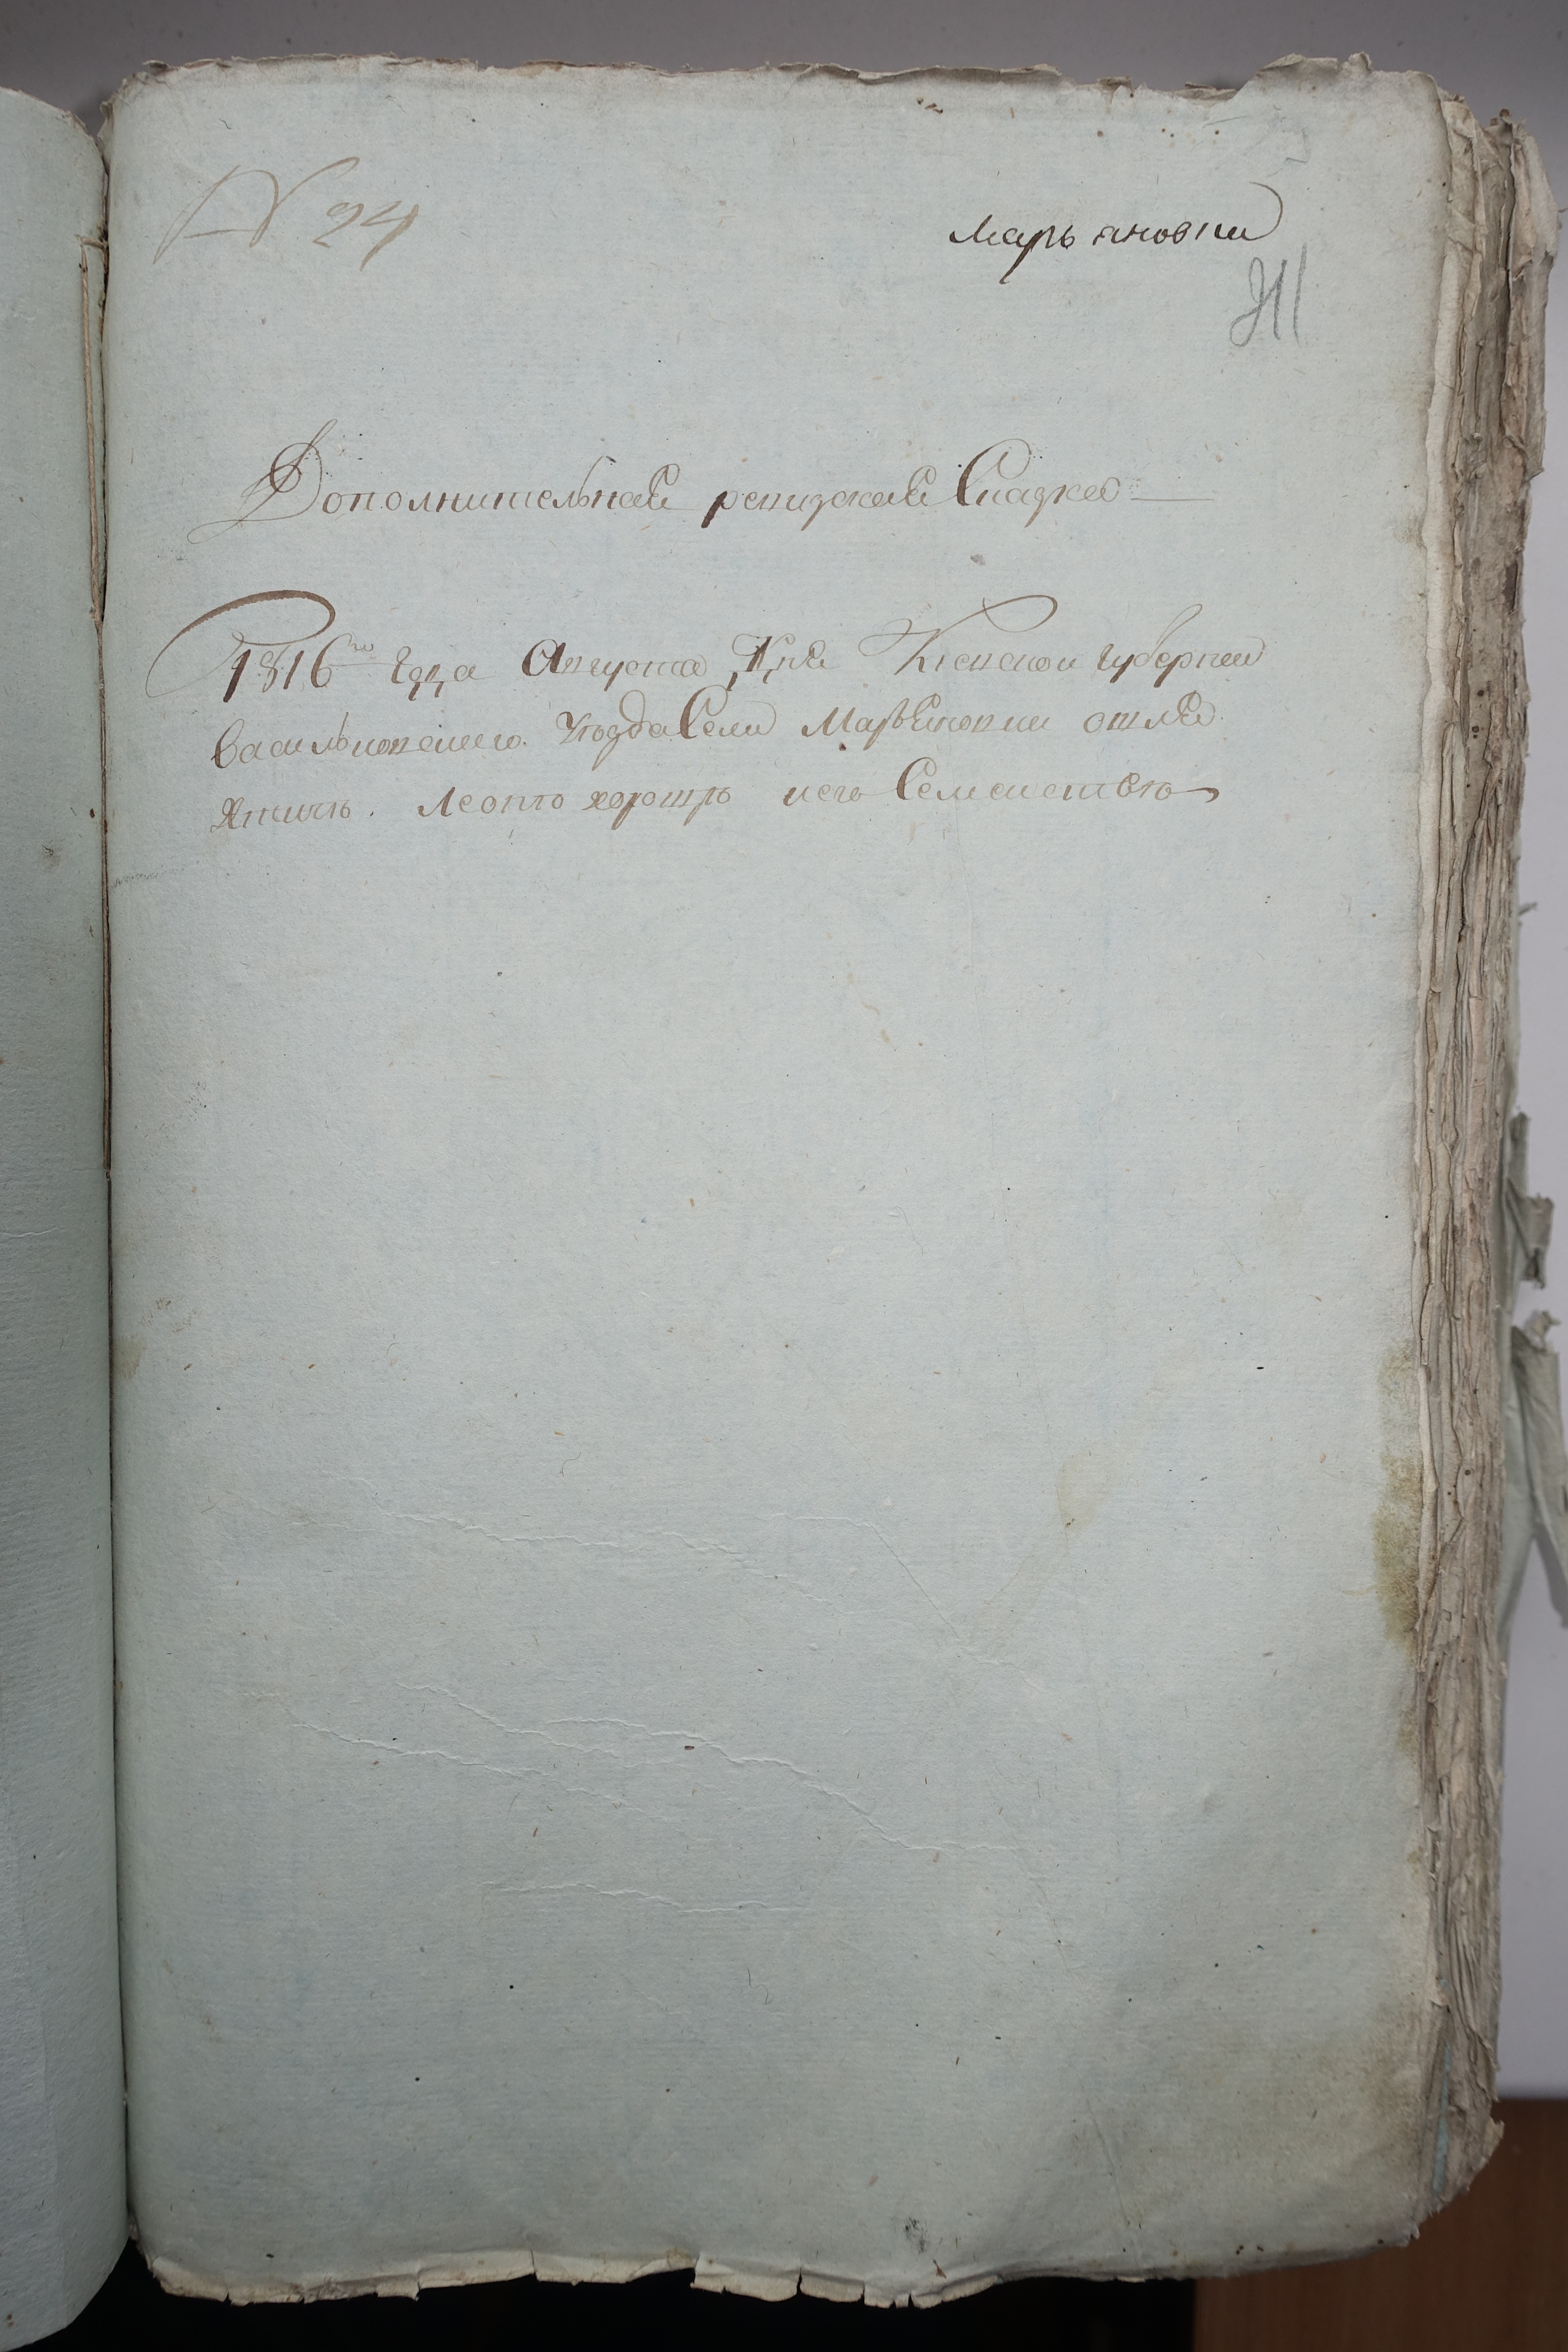 N 24
Марьяновки
Дополнительная ревизская Сказка
1816го года Августа дня Киевской губернии
Васильковского уезда Села Марьяновки
его Семейством